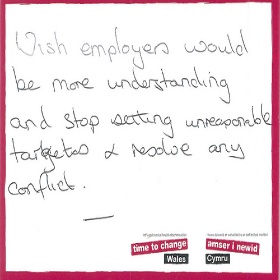 Wish employers would
be more understanding
and stop setting unreasonable
targetes & resolve any
conflict.
time to change
Wales
amser i newid
Cymru